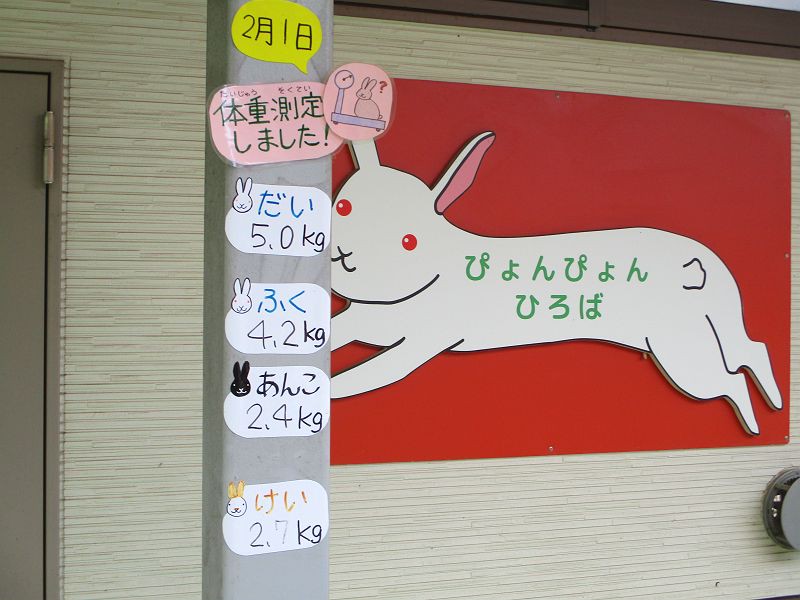 2月1日
たいじゅう そくてい
体重測定
しました!
?
だい
5.0kg
ふく
4.2kg
あんこ
2.4kg
けい
2.7kg
ぴょんぴょん
ひろば